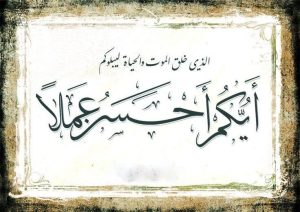 الذي خلق الموت والحياة ليبلوكم
أَيُّكُمْ أَحْسَنُ عَمَلًا